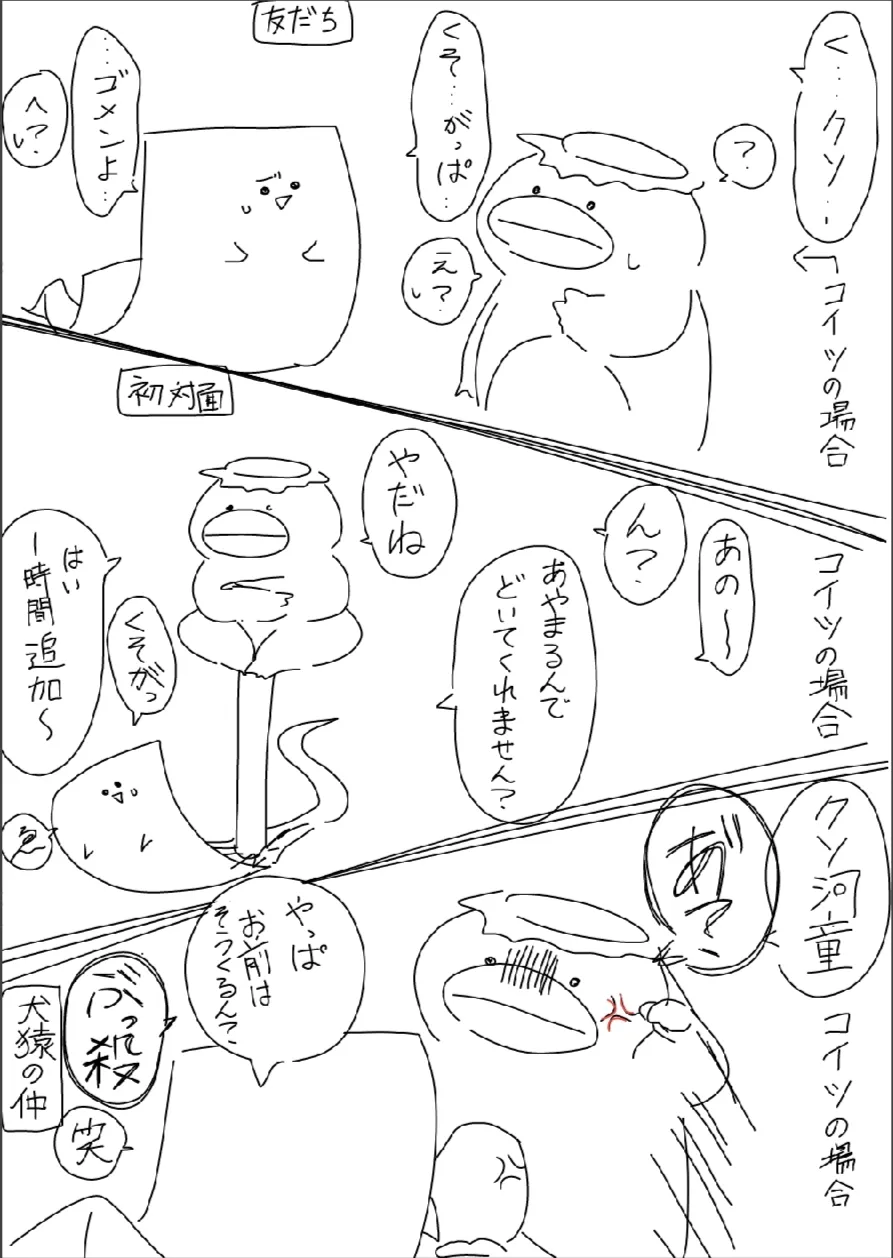 友だち
コイツの場合
く…クソ…
？
くそ…がっぱ…
え？
…ゴメンよ…
へ？
初対面
コイツの場合
あの〜
ん？
あやまるんで
どいてくれません？
やだね
くそがっ
はい
一時間追加〜
ゑ
コイツの場合
クソ河童
あ゛っ
やっぱ
お前は
そつくるん？
ぶっ殺
笑
犬猿の仲